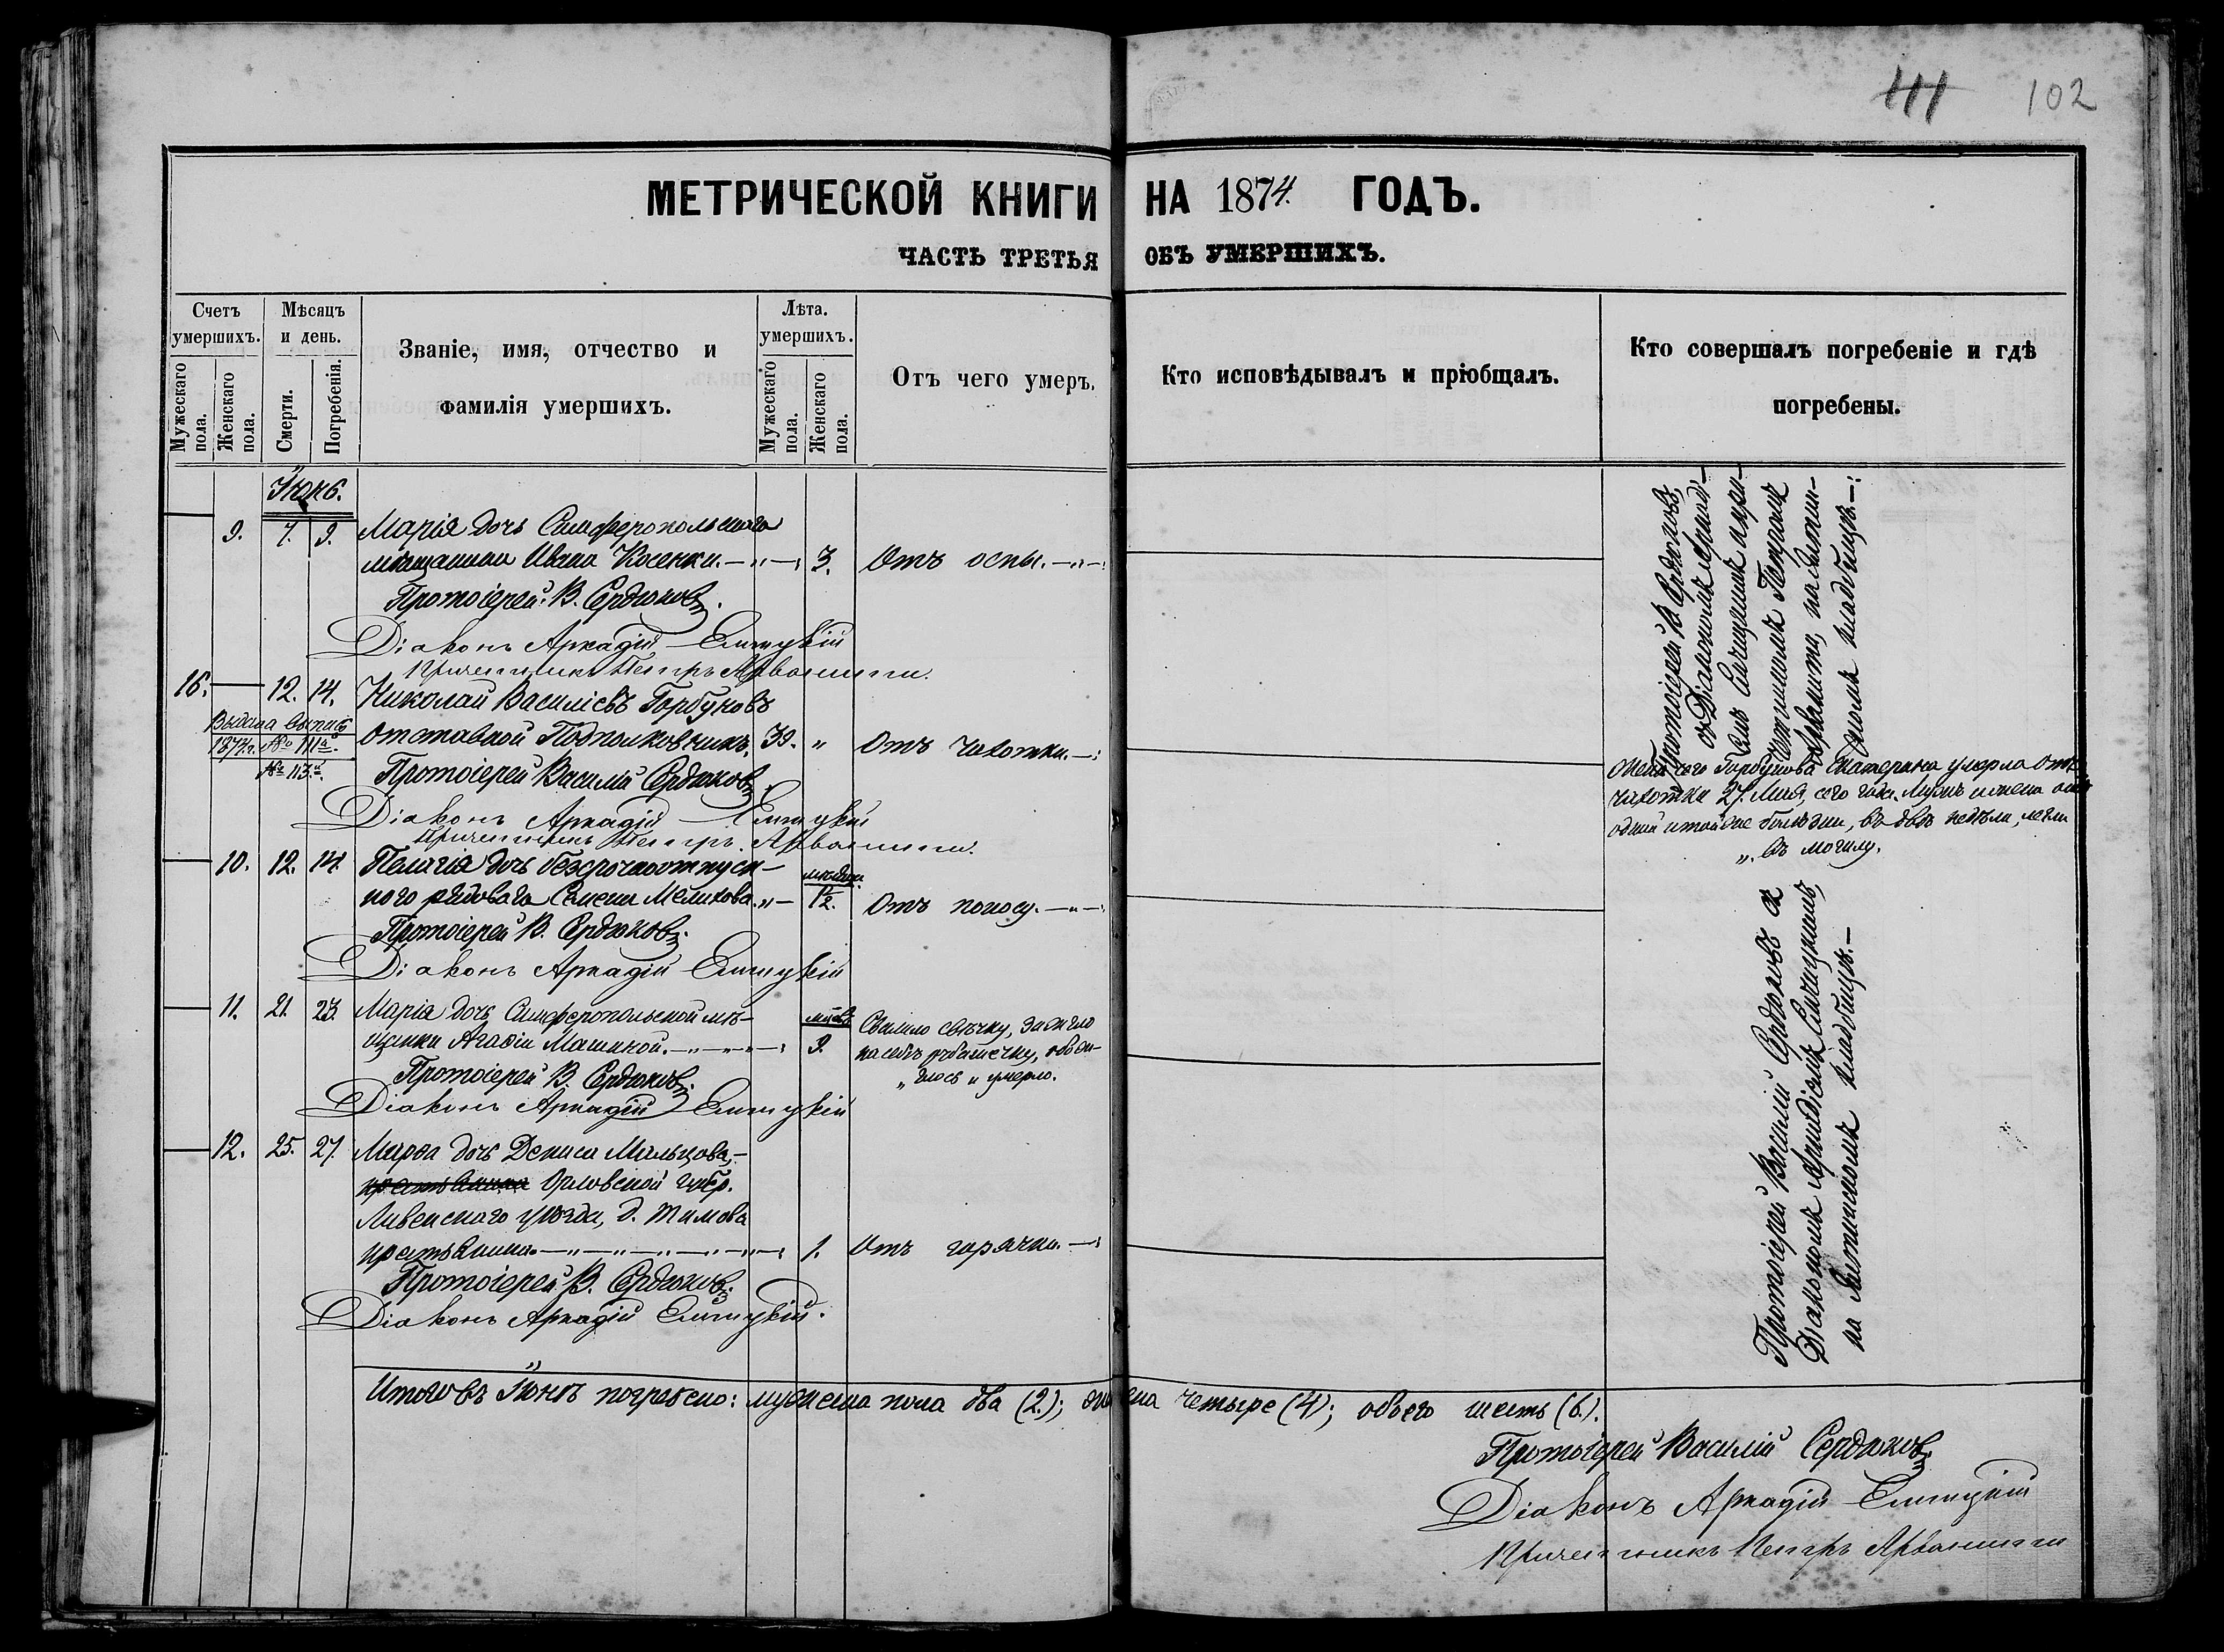 111 102
МЕТРИЧЕСКОЙ КНИГИ НА 1874. ГОДЪ.
ЧАСТЬ ТРЕТЬЯ ОБЪ УМЕРШИХЪ.
Счетъ умершихъ.
Мужескаго пола.
Женскаго пола.
Мѣсяцъ и день.
Смерти.
Погребенія.
Званіе, имя, отчество и
фамилія умершихъ.
Лѣта. умершихъ.
Мужескаго пола.
Женскаго пола.
Отъ чего умеръ.
Кто исповѣдывалъ и пріобщалъ.
Кто совершалъ погребеніе и гдѣ
погребены.
Іюнь.
9. 7. 9. Марія дочь Симферопольскаго
мѣщанина Ивана Косенки. 3. Отъ оспы.
Протоіерей В. Сердюковъ.
Діаконъ Аркадій
Причетникъ Петръ
16. 12. 14. Николай Василіевъ Горбуновъ
отставной Подполковникъ. 39. „ Отъ чахотки.
Выдана выпись
1877 г. № 111
№ 113.
Протоіерей Василій Сердюковъ
Діаконъ Аркадій
Причетникъ Петръ
10. 12. 14. Пелагія дочь безсрочноотпуск-
ного рядоваго Семена Мелихова. 1/2. Отъ поносу.
Протоіерей В. Сердюковъ.
Діаконъ Аркадій
11. 21. 23. Марія дочь Симферопольской мѣ-
щанки Агафіи 9.
Свалило свѣчку, зажгло
на себѣ рубашечку, обож-
глось и умерло.
Протоіерей В. Сердюковъ.
Діаконъ Аркадій
12. 25. 27. Марѳа дочь Дениса Мальцова,
крестьянина Орловской губер.
Ливенскаго уѣзда, д. Тимова
крестьянина. 1. Отъ горячки.
Протоіерей В. Сердюковъ.
Діаконъ Аркадій
Протоіерей В. Сердюковъ,
съ Діакономъ Аркаді-
емъ и при-
четникомъ Петромъ
на
кладбищѣ.
Жена сего Горбунова Екатерина умерла отъ
чахотки 27. Мая, сего года. Мужъ и жена отъ
одной и той же болѣзни, въ двѣ недѣли, легли
„ въ могилу.
Протоіерей Василій Сердюковъ съ
Діакономъ Аркадіемъ
на кладбищѣ.
Итого въ Іюнѣ погребено: мужеска пола два (2.); женска четыре (4); обоего шесть (6.).
Протоіерей Василій Сердюковъ
Діаконъ Аркадій
Причетникъ Петръ